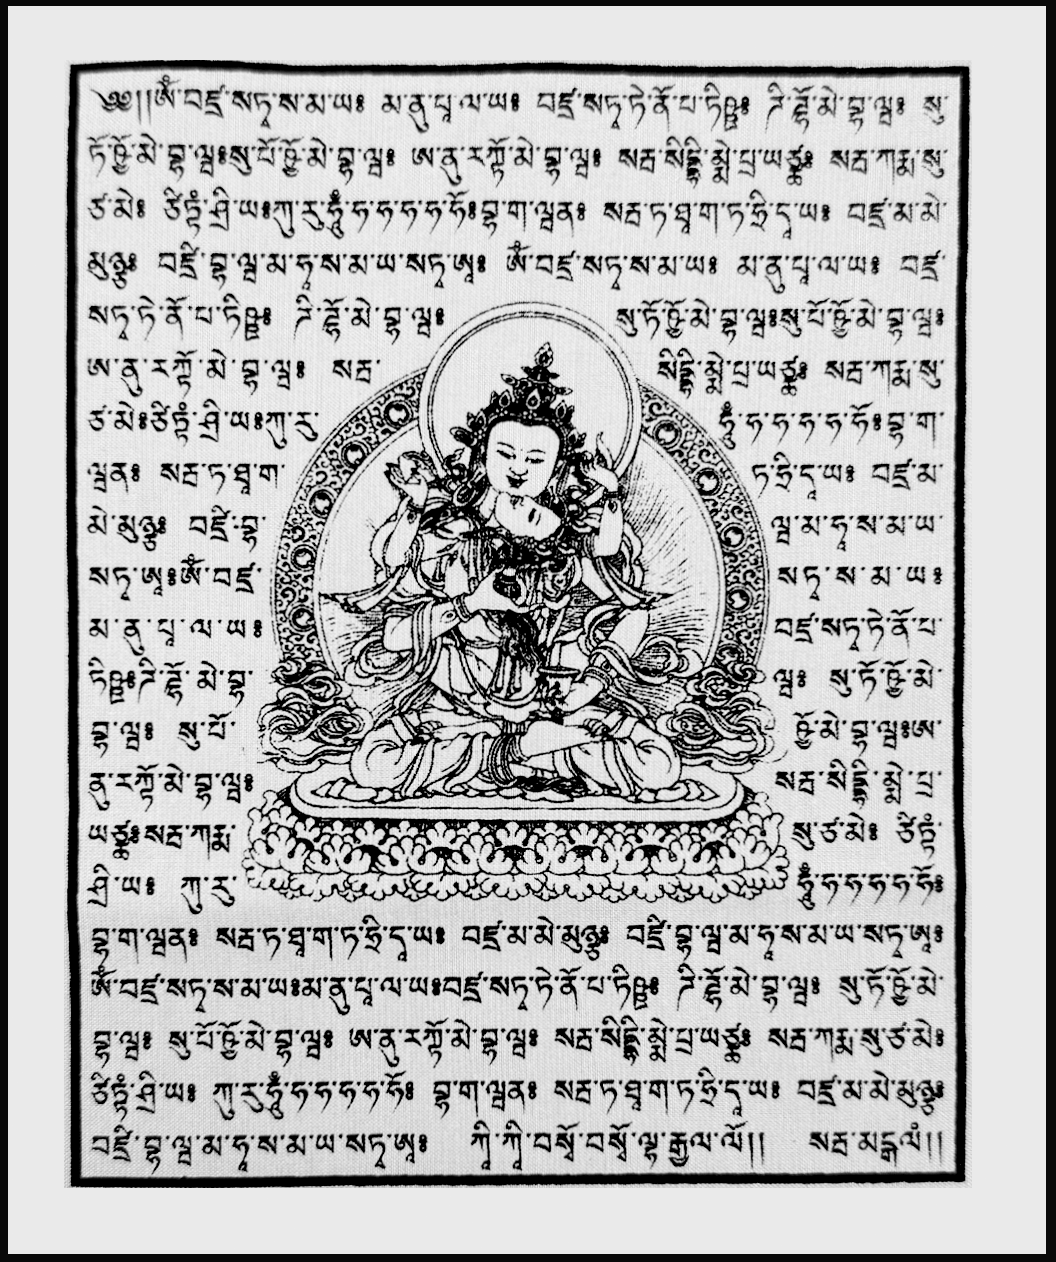 ༄༅།།ཨོཾ་བཛྲ་སཏྭ་ས་མ་ཡ༔ མ་ནུ་པཱ་ལ་ཡ༔ བཛྲ་སཏྭ་ཏེ་ནོ་པ་ཏིཥྛ༔ ཌི་ཌྷོ་མེ་བྷ་ལྦ༔ སུ་
ཏོ་ཥྱོ་མེ་བྷ་ལྦ༔སུ་པོ་ཥྱོ་མེ་བྷ་ལྦ༔ ཨ་ནུ་རཀྟོ་མེ་བྷ་ལྦ༔ སརྦ་སིདྡྷི་མྨེ་པྲ་ཡཙྪ༔ སརྦ་ཀརྨ་སུ་
ཙ་མེ༔ ཙིཏྟཾ་ཤྲི་ཡ༔ཀུ་རུ་ཧཱུྃ་ཧ་ཧ་ཧ་ཧ་ཧ་ཧོ༔བྷ་ག་ལྦན༔ སརྦ་ཏ་ཐཱ་ག་ཏ་ཧྲི་དཱ་ཡ༔ བཛྲ་མ་མེ་
མུཉྩ༔ བཛྲི་བྷ་ལྦ་མ་ཧཱ་ས་མ་ཡ་སཏྭ་ཨཱ༔ ཨོཾ་བཛྲ་སཏྭ་ས་མ་ཡ༔ མ་ནུ་པཱ་ལ་ཡ༔ བཛྲ་
སཏྭ་ཏེ་ནོ་པ་ཏིཥྛ༔ ཌི་ཌྷོ་མེ་བྷ་ལྦ༔ སུ་ཏོ་ཥྱོ་མེ་བྷ་ལྦ༔སུ་པོ་ཥྱོ་མེ་བྷ་ལྦ༔
ཨ་ནུ་རཀྟོ་མེ་བྷ་ལྦ༔ སརྦ་ སིདྡྷི་མྨེ་པྲ་ཡཙྪ༔ སརྦ་ཀརྨ་སུ་
ཙ་མེ༔ཙིཏྟཾ་ཤྲི་ཡ༔ཀུ་རུ་ ཧཱུྃ་ཧ་ཧ་ཧ་ཧ་ཧ་ཧོ༔བྷ་ག་
ལྦན༔ སརྦ་ཏ་ཐཱ་ག་ ཏ་ཧྲི་དཱ་ཡ༔ བཛྲ་མ་
མེ་མུཉྩ༔ བཛྲི་བྷ་ ལྦ་མ་ཧཱ་ས་མ་ཡ་
སཏྭ་ཨཱ༔ཨོཾ་བཛྲ་ སཏྭ་ས་མ་ཡ༔
མ་ནུ་པཱ་ལ་ཡ༔ བཛྲ་སཏྭ་ཏེ་ནོ་པ་
ཏིཥྛ༔ཌི་ཌྷོ་མེ་བྷ་ ལྦ༔ སུ་ཏོ་ཥྱོ་མེ་
བྷ་ལྦ༔ སུ་པོ་ ཥྱོ་མེ་བྷ་ལྦ༔ཨ་
ནུ་རཀྟོ་མེ་བྷ་ལྦ༔ སརྦ་སིདྡྷི་མྨེ་པྲ་
ཡཙྪ༔སརྦ་ཀརྨ་ སུ་ཙ་མེ༔ ཙིཏྟཾ་
ཤྲི་ཡ༔ ཀུ་རུ་ ཧཱུྃ་ཧ་ཧ་ཧ་ཧ་ཧ་ཧོ༔
བྷ་ག་ལྦན༔ སརྦ་ཏ་ཐཱ་ག་ཏ་ཧྲི་དཱ་ཡ༔ བཛྲ་མ་མེ་མུཉྩ༔ བཛྲི་བྷ་ལྦ་མ་ཧཱ་ས་མ་ཡ་སཏྭ་ཨཱ༔
ཨོཾ་བཛྲ་སཏྭ་ས་མ་ཡ༔མ་ནུ་པཱ་ལ་ཡ༔བཛྲ་སཏྭ་ཏེ་ནོ་པ་ཏིཥྛ༔ ཌི་ཌྷོ་མེ་བྷ་ལྦ༔ སུ་ཏོ་ཥྱོ་མེ་
བྷ་ལྦ༔ སུ་པོ་ཥྱོ་མེ་བྷ་ལྦ༔ ཨ་ནུ་རཀྟོ་མེ་བྷ་ལྦ༔ སརྦ་སིདྡྷི་མྨེ་པྲ་ཡཙྪ༔ སརྦ་ཀརྨ་སུ་ཙ་མེ༔
ཙིཏྟཾ་ཤྲི་ཡ༔ ཀུ་རུ་ཧཱུྃ་ཧ་ཧ་ཧ་ཧ་ཧ་ཧོ༔ བྷ་ག་ལྦན༔ སརྦ་ཏ་ཐཱ་ག་ཏ་ཧྲི་དཱ་ཡ༔ བཛྲ་མ་མེ་མུཉྩ༔
བཛྲི་བྷ་ལྦ་མ་ཧཱ་ས་མ་ཡ་སཏྭ་ཨཱ༔ ཀཱི་ཀཱི་བསྭོ་བསྭོ་ལྷ་རྒྱལ་ལོ།། སརྦ་མངྒལཾ།།